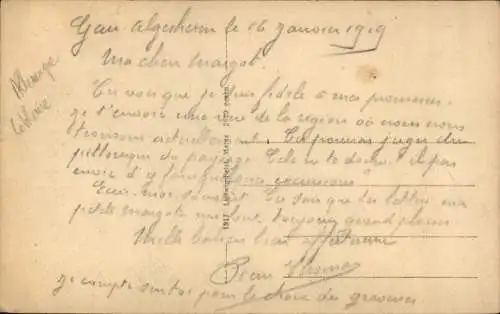 Gau Algesheim le 16 Janvier 1919
Ma chère Margot.
Tu vois que je suis fidèle à ma promesse.
je t'envoie une vue de la région où nous nous
trouvons actuellement. Tu pourras juger du
pittoresque du paysage. Cela ne te donne-t-il pas
envie d'y faire excursions
Ecris-moi souvent. Tu sais que tes lettres ma
petite Margot me font toujours grand plaisir
Mille baisers bien
Jean
je compte sur toi pour le choix des gravures
Allemagne
1917